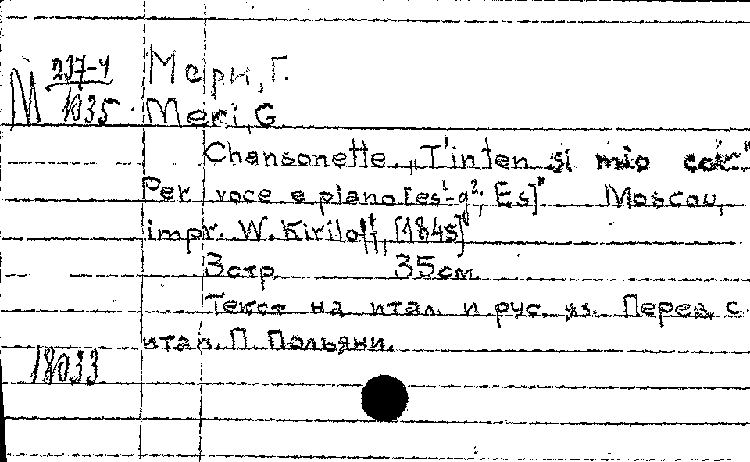 М 237-4 Мери, Г.
1035 Meri, G.
Chansonette. „T'inten si mio cor"
Per voce e piano [es¹-g²; Es]" Moscou,
impr. W. Kiriloff, [1845]
3 стр 35 см
Текст на итал. и рус. яз. Перев. с
итал. П. Пальяни.
18033